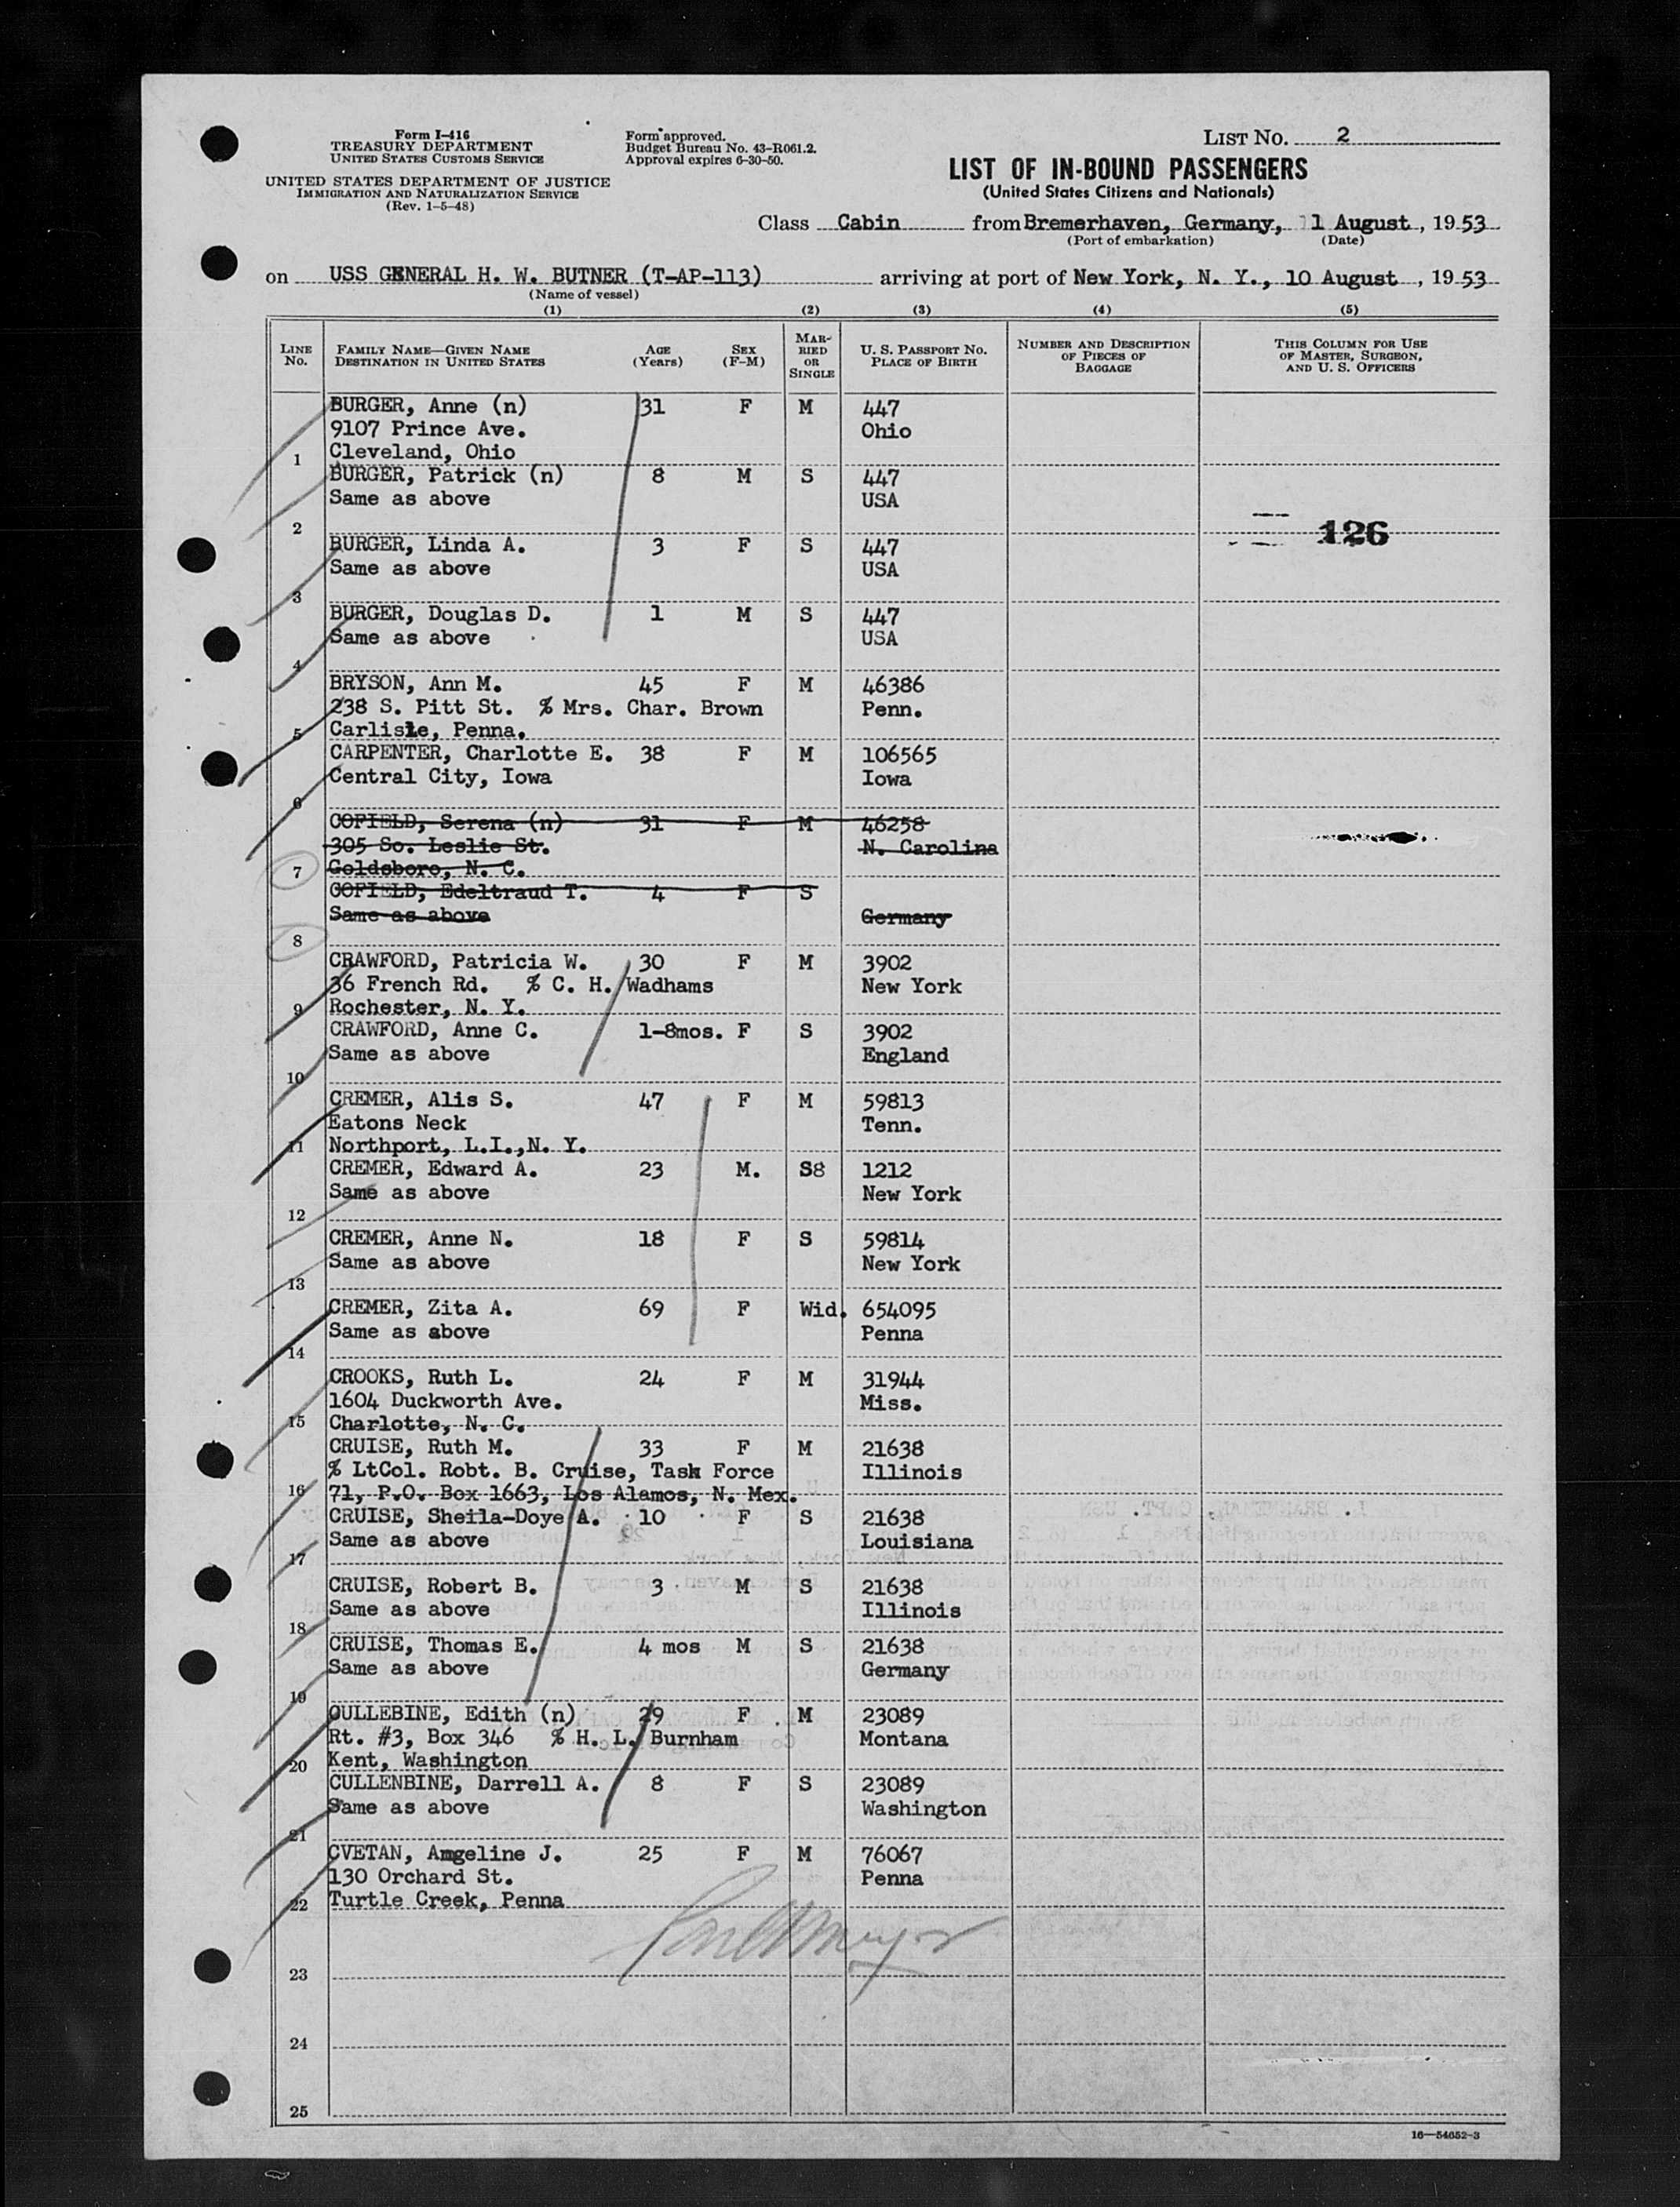 Form I-416
TREASURY DEPARTMENT
UNITED STATES CUSTOMS SERVICE
UNITED STATES DEPARTMENT OF JUSTICE
IMMIGRATION AND NATURALIZATION SERVICE
(Rev. 1-5-48)
Form approved.
Budget Bureau No. 43-R061.2.
Approval expires 6-30-50.
LIST NO. 2
LIST OF IN-BOUND PASSENGERS
(United States Citizens and Nationals)
Class Cabin from Bremerhaven, Germany, 1 August, 1953
(Port of embarkation) (Date)
on USS GENERAL H. W. BUTNER (T-AP-113) arriving at port of New York, N. Y., 10 August, 1953
(Name of vessel)
(1) (2) (3) (4) (5)
LINE No. FAMILY NAME—GIVEN NAME DESTINATION IN UNITED STATES AGE (Years) SEX (F-M) MARRIED OR SINGLE U. S. PASSPORT NO. PLACE OF BIRTH NUMBER AND DESCRIPTION OF PIECES OF BAGGAGE THIS COLUMN FOR USE OF MASTER, SURGEON, AND U. S. OFFICERS
BURGER, Anne (n) 31 F M 447
9107 Prince Ave. Ohio
1 Cleveland, Ohio
BURGER, Patrick (n) 8 M S 447
Same as above USA
2
126
BURGER, Linda A. 3 F S 447
Same as above USA
3
BURGER, Douglas D. 1 M S 447
Same as above USA
4
BRYSON, Ann M. 45 F M 46386
238 S. Pitt St. % Mrs. Char. Brown Penn.
5 Carlisle, Penna.
CARPENTER, Charlotte E. 38 F M 106565
Central City, Iowa Iowa
6
COFIELD, Serena (n) 31 F M 46258
305 So. Leslie St. N. Carolina
7 Goldsboro, N. C.
COFIELD, Edeltraud T. 4 F S
Same as above Germany
8
CRAWFORD, Patricia W. 30 F M 3902
36 French Rd. % C. H. Wadhams New York
9 Rochester, N. Y.
CRAWFORD, Anne C. 1-8mos. F S 3902
Same as above England
10
CREMER, Alis S. 47 F M 59813
Eatons Neck Tenn.
11 Northport, L.I.,N. Y.
CREMER, Edward A. 23 M. S8 1212
Same as above New York
12
CREMER, Anne N. 18 F S 59814
Same as above New York
13
CREMER, Zita A. 69 F Wid. 654095
Same as above Penna
14
CROOKS, Ruth L. 24 F M 31944
1604 Duckworth Ave. Miss.
15 Charlotte, N. C.
CRUISE, Ruth M. 33 F M 21638
% LtCol. Robt. B. Cruise, Task Force Illinois
16 71, P.O. Box 1663, Los Alamos, N. Mex.
CRUISE, Sheila-Doye A. 10 F S 21638
Same as above Louisiana
17
CRUISE, Robert B. 3 M S 21638
Same as above Illinois
18
CRUISE, Thomas E. 4 mos M S 21638
Same as above Germany
19
CULLEBINE, Edith (n) 29 F M 23089
Rt. #3, Box 346 % H. L. Burnham Montana
20 Kent, Washington
CULLENBINE, Darrell A. 8 F S 23089
Same as above Washington
21
CVETAN, Amgeline J. 25 F M 76067
130 Orchard St. Penna
22 Turtle Creek, Penna
23
24
25
16—54652-3